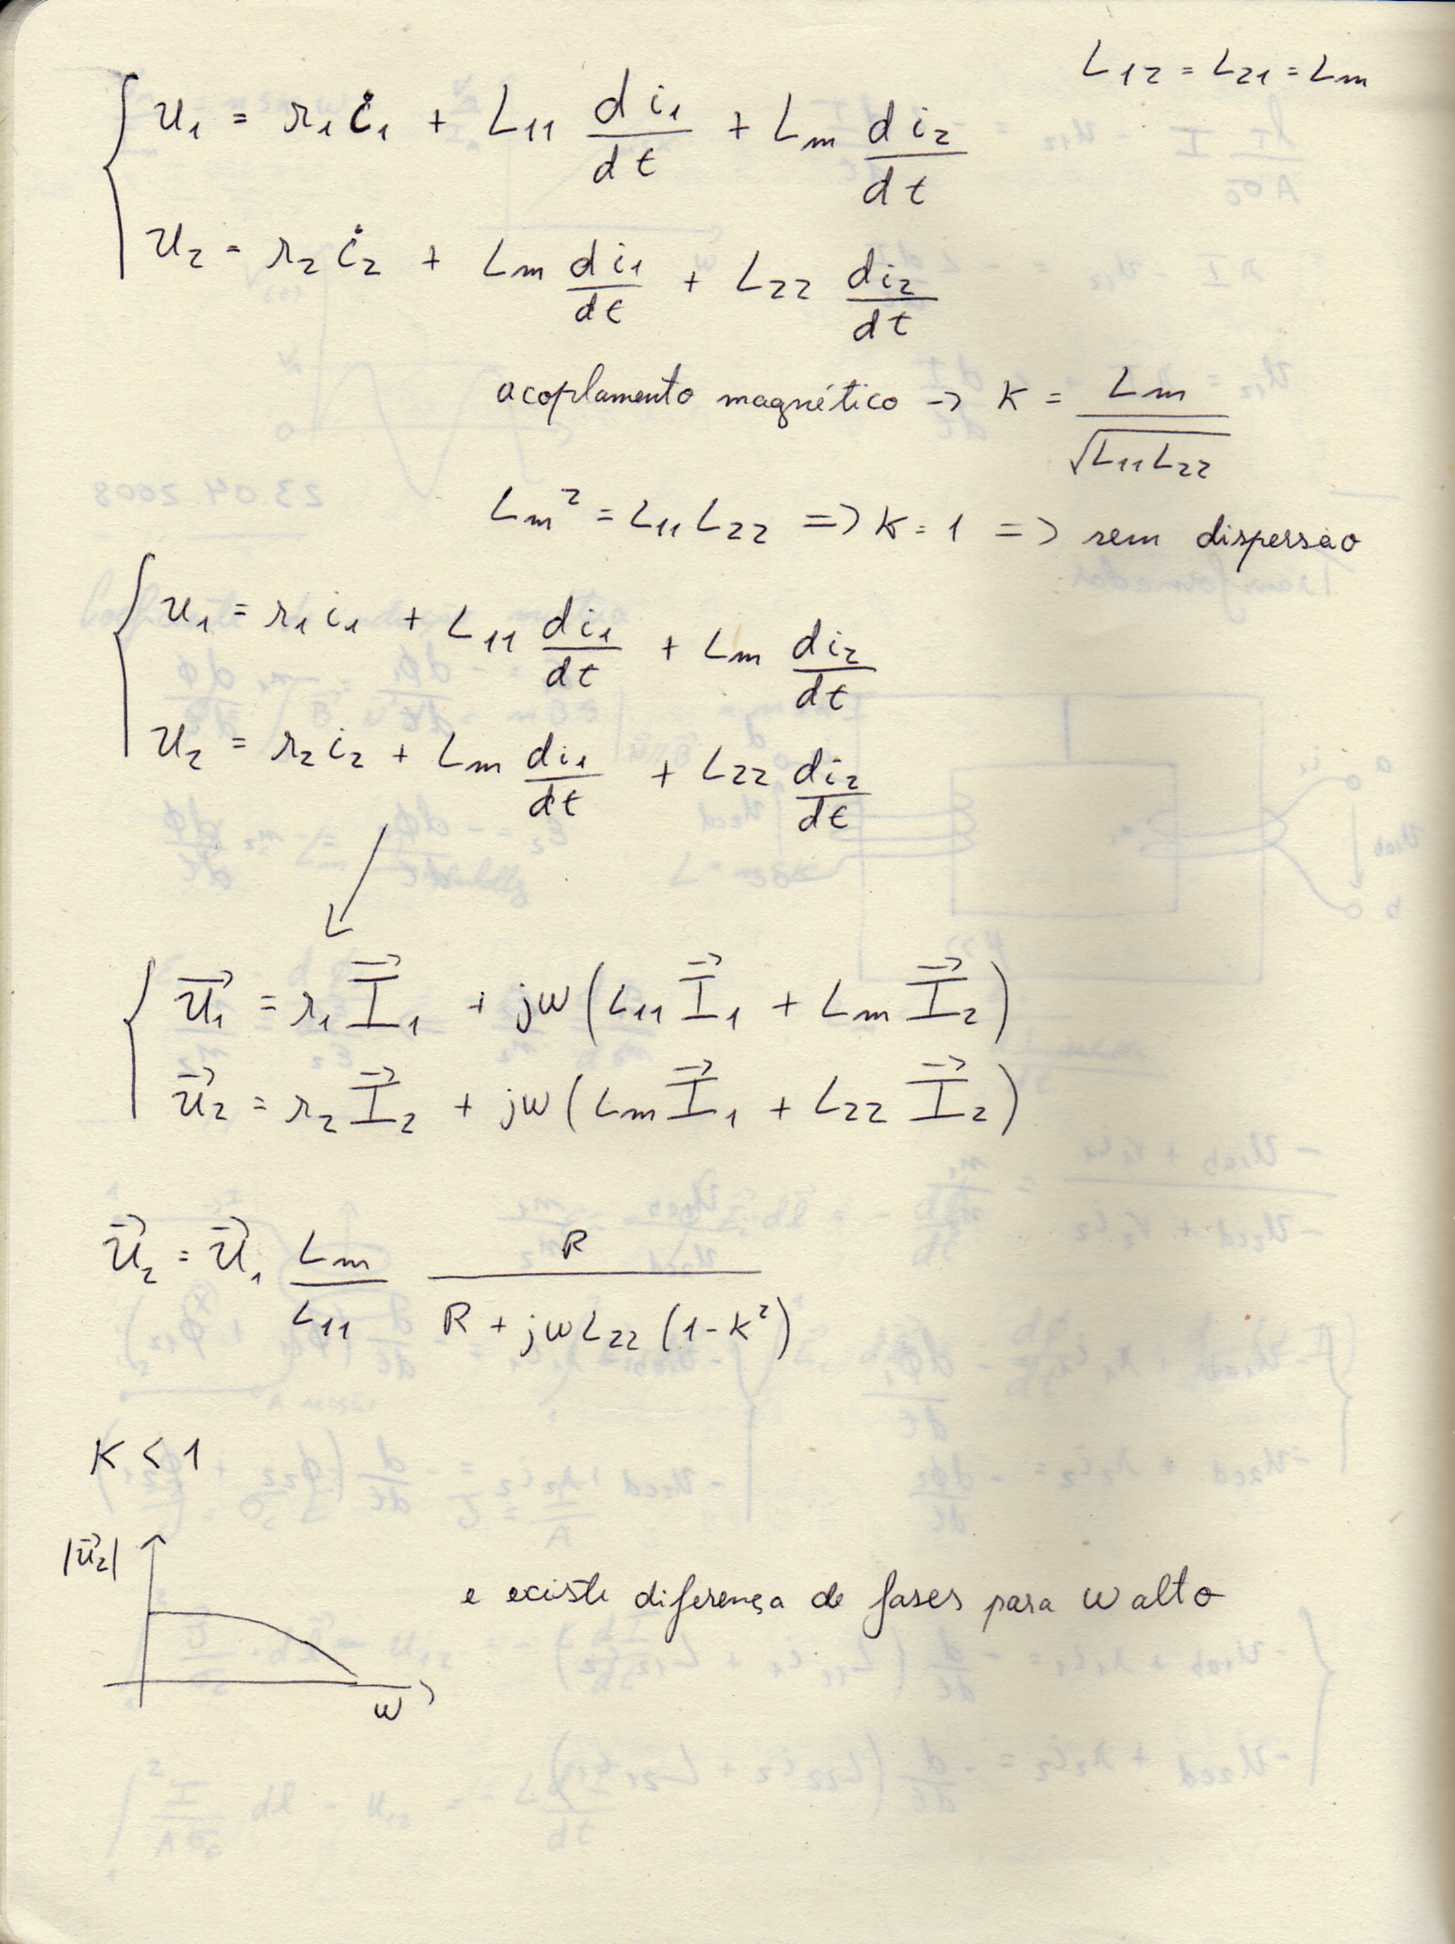 L₁₂ = L₂₁ = Lm
u₁ = r₁ i₁ + L₁₁ di₁/dt + Lm di₂/dt
u₂ = r₂ i₂ + Lm di₁/dt + L₂₂ di₂/dt
acoplamento magnético -> K = Lm/√L₁₁L₂₂
Lm² = L₁₁ L₂₂ => K = 1 => sem dispersão
23.04.2008
Transformador
u₁ = r₁ i₁ + L₁₁ di₁/dt + Lm di₂/dt
u₂ = r₂ i₂ + Lm di₁/dt + L₂₂ di₂/dt
U⃗₁ = r₁ I⃗₁ + jw(L₁₁ I⃗₁ + Lm I⃗₂)
U⃗₂ = r₂ I⃗₂ + jw(Lm I⃗₁ + L₂₂ I⃗₂)
U⃗₂ = U⃗₁ Lm/L₁₁ R/(R + jwL₂₂(1-K²))
K < 1
|U⃗₂|
e existe diferença de fases para w alto
w